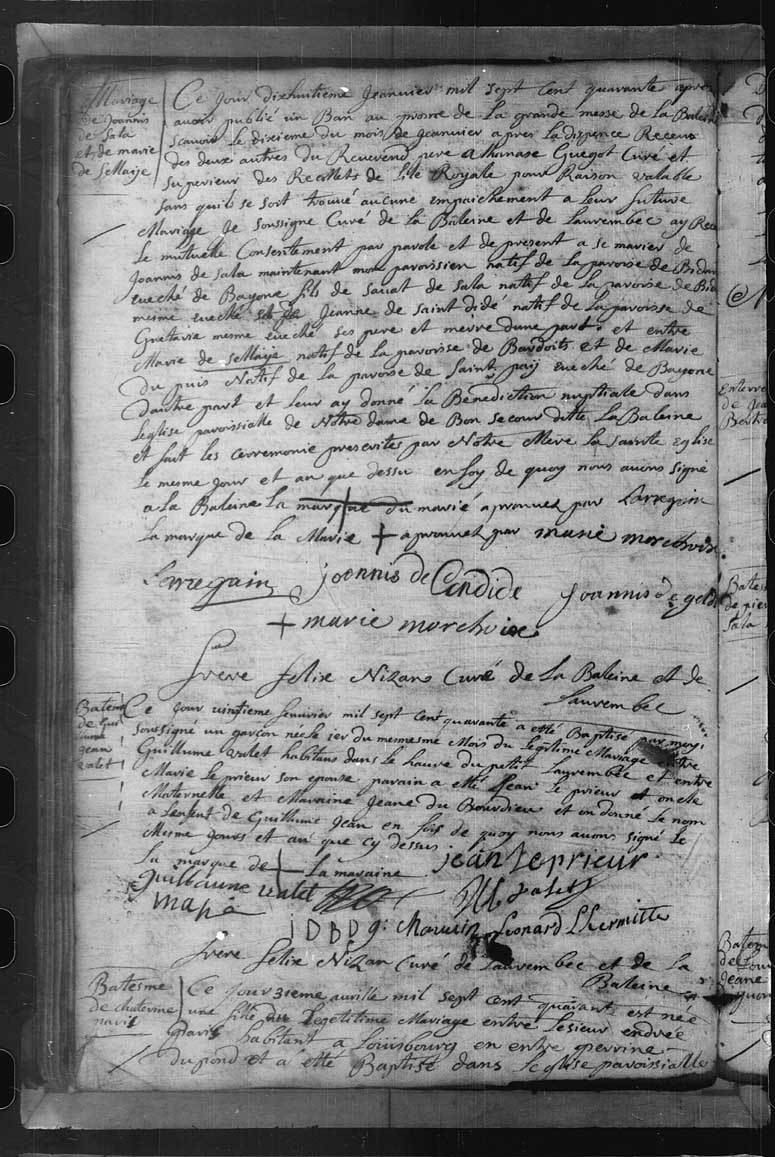 Mariage
de Joannis
de Sala
et de marie
de seMaije
Ce Jour dixhuitieme Jeanvier mil sept Cent quarante apres
avoir publié un Ban au prosne de La grande messe de La Baleine
scavoir Le dixieme du mois de Jeanvier apres La dispence Receue
des deux autres du Reverend pere athanase Guegot Curé et
superieur des Recollets de L'ile Royale pour Raison valable
sans quils se soit trouvé aucune empaichement a Leur future
Mariage Je soussigne Curé de La Baleine et de Laurembec ay Receu
Le mutuelle Consentement par parole et de present a se marier de
Joannis de sala maintenant mon paroissien natif de La paroise de Bidar
eveché de Bayone fils de savat de sala natif de La paroise de Bid
mesme eveché et de Jeanne de saint didé natif de La paroisse de
Guetarie mesme eveché ses pere et merre dune part et entre
Marie de seMaije natif de La paroisse de Bardoits et de Marie
Du puis Natif de La paroise de saint paij eveché de Bayone
dautre part et Leur ay donné La Benediction nuptiale dans
Leglise paroissialle de Notre dame de Bon secour ditte La Baleine
et fait Les cerremonie prescrites par Notre Mere La sainte Eglise
Le mesme Jour et an que dessu en foy de quoy nous avons signé
a La Baleine La marque du marié aprouvez par Larregain
La marque de La Marie + aprouvez par marie morchoise
Larregain Joannis de Candide Joannis de gelds
+ marie morchoise
frere felix Nizan Curé de La Baleine et de
Laurembec
Batesme
de Guil
laume
Jean
valet
Ce Jour vintieme Jenvier mil sept Cent quarante a etté Baptisé par moy
soussigné un garçon née le 1er du mesmesme Mois du Legitime Mariage entre
Guillume valet habitans dans le havre du petit Laurembec et entre
Marie Le prieur son epouse parain a etté Jean Le prieur oncle
Maternelle et Maraine Jeane du Bourdieu et on donné Le nom
a Lenfent de Guillume Jean en foij de quoy nous avons signé Le
Mesme Jours et an que cy dessus
La marque de + La maraine Jean Leprieur
Guillaume valet
iDBDg: Leonard Lhermitte
frere felix Nizan Curé de Laurembec et de La
Baleine
Batesme
de chaterine
paris
Ce Jour 3ieme avrille mil sept Cent quarante est née
une fille du Legetitime Mariage entre Lesieur endrée
paris habitant a Louisbourg en entre perrine
dupond et a etté Baptisé dans Leglise paroissialle
Enterre
de Jea
Batesm
de pier
sala
Batesm
de Loui
Jeane